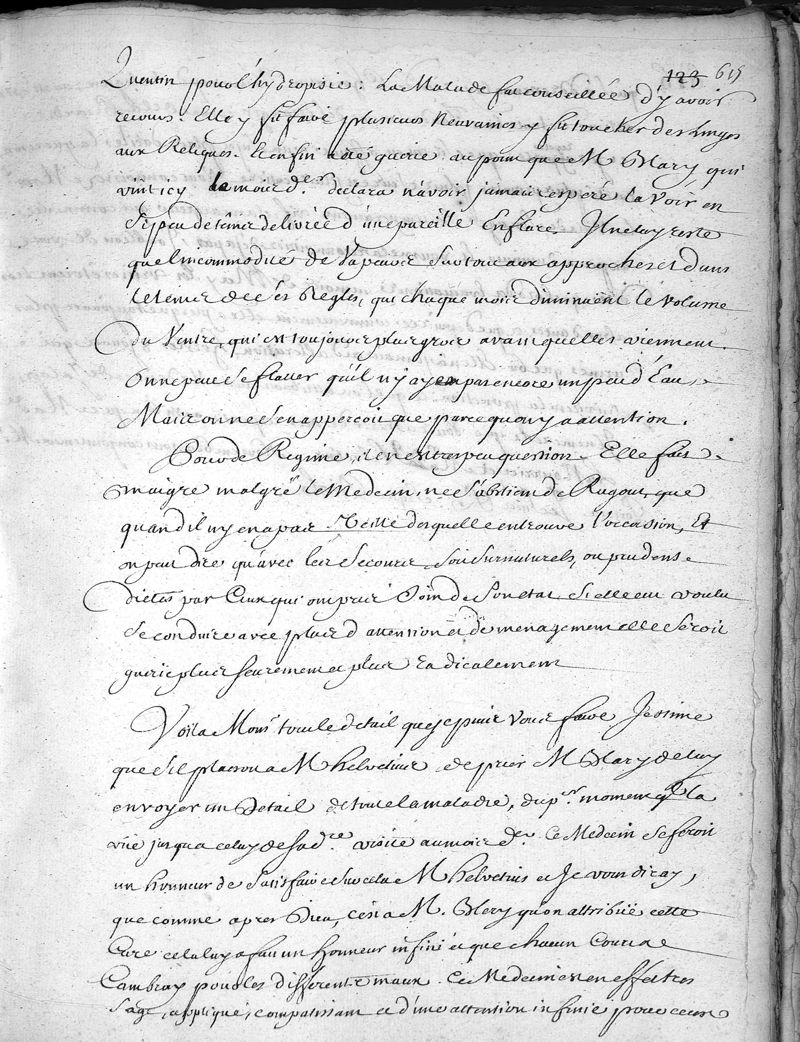 123 615
Quentin pour l'hydropisie : La Malade fut conseillée d'y avoir
recours. Elle y fit faire plusieurs Neuvaines y fit toucher des Linges
aux Reliques. et Enfin a été guerie au point que M. Mary qui
vint icy le mois d.er declara n'avoir jamais esperé la voir en
si peu de tems delivrée d'une pareille Enflure. Il ne luy reste
que l'incommodité de Vapeurs surtout aux approches et dans
le tems de ses Regles, qui chaque mois diminuent le volume
du Ventre, qui est toujours plus gros avant quelles viennent.
On ne peut se flatter qu'il n'y ayt pas encore un peu d'Eau,
Mais on ne s'en apperçoit que parce qu'on y a attention.
Pour de Regime, il en est très peu question. Elle fait
maigre malgré le Medecin, ne s'abstient de Ragout, que
quand il n'y en a pas, Veille des qu'elle en trouve l'occasion, Et
on peut dire qu'avec les secours soit surnaturels, ou prudens
dictés par Ceux qui ont pris Soin de Son etat, si elle eut voulu
se conduire avec plus d'attention et de menagement elle seroit
guerie plus seurement et plus radicalement
Voila Mons.r tout le detail que je puis vous faire J'estime
que s'il plaisoit a M. helvetius de prier M. Mary de luy
envoyer un Detail de toute la maladie, du p.r moment qu'il la
vüe jusqu'a celuy de sa d.re visite au mois d.er Ce Medecin se feroit
un honneur de Satisfaire sur cela M. helvetius et Je vous diray,
que comme apres Dieu, c'est a M. Mary qu'on attribüe cette
Cure cela luy a fait un honneur infini et que chacun Court a
Cambray pour les differents maux. Ce Medecin est en effet tres
sage, appliqué, compatissant et d'une attention infinie pour ceux